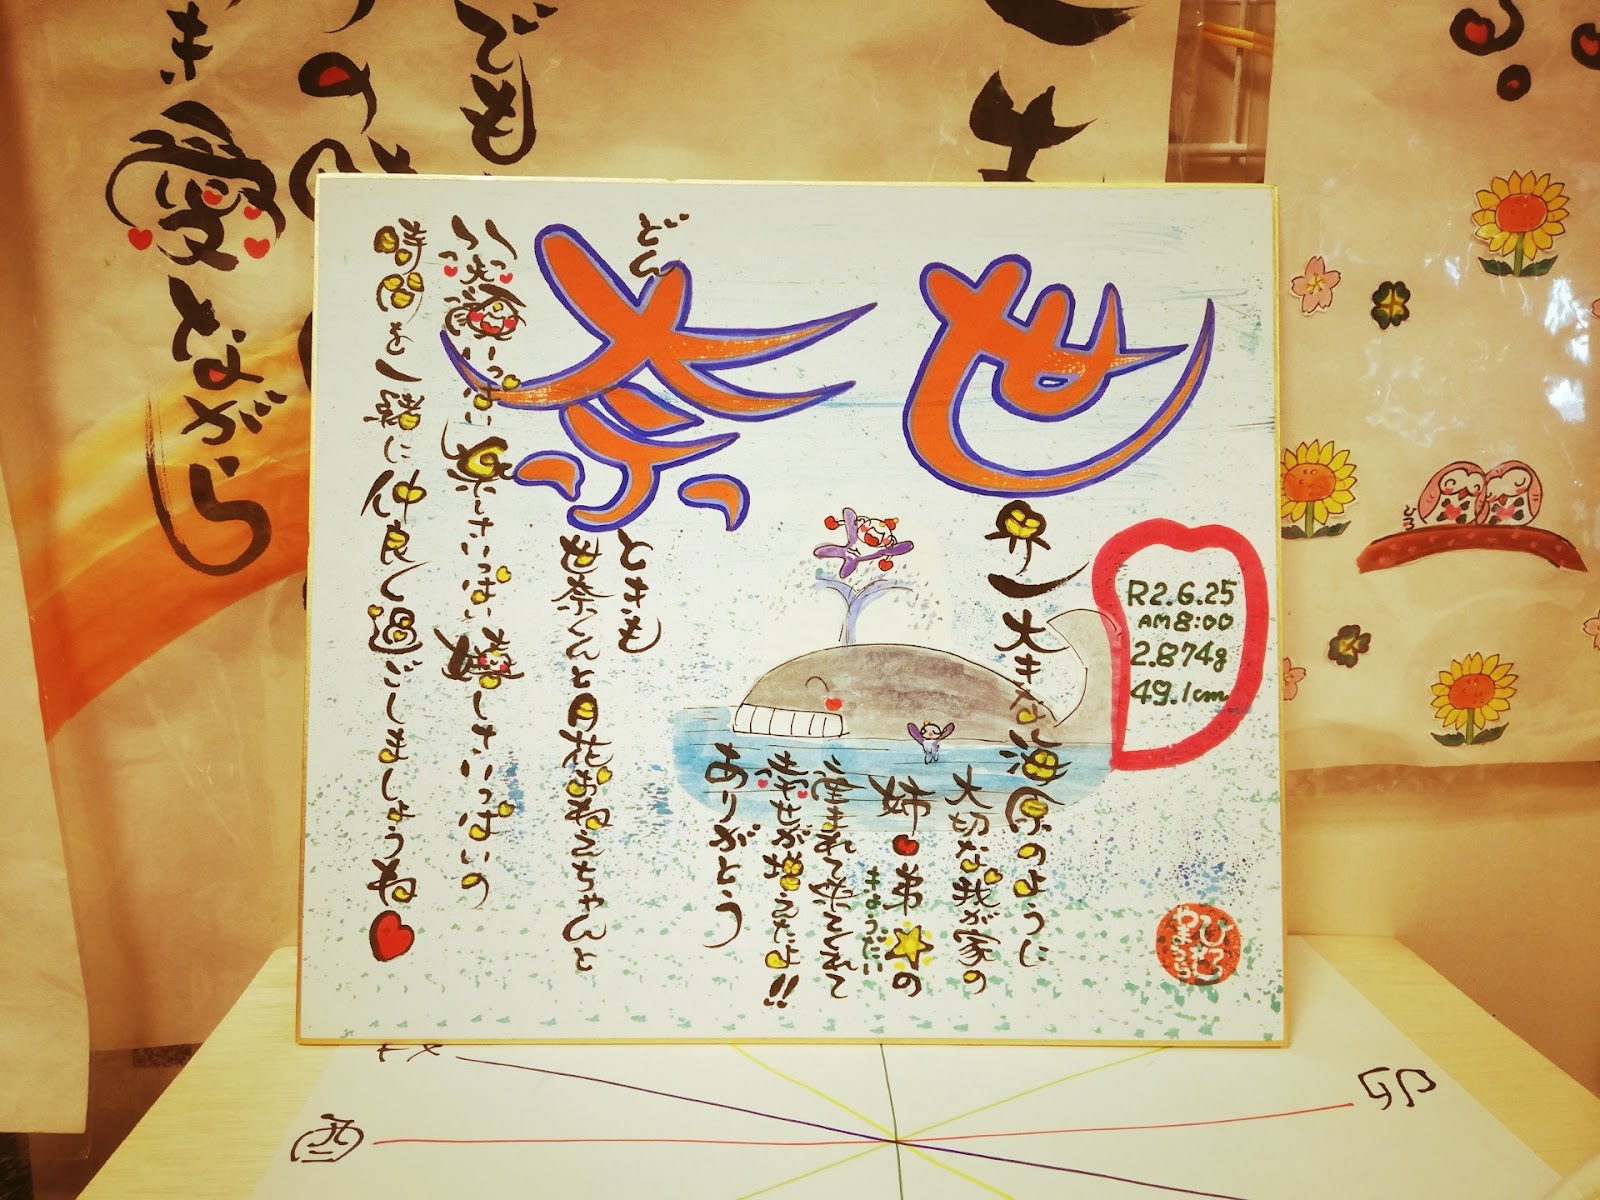 世奈
R2.6.25
AM8:00
2.874g
49.1cm
世界一大きな海原のように
大切な我が家の
姉♥弟☆の
きょうだい
産まれて来てくれて
幸せが増えたよ!!
ありがとう
どんなときも
世奈くんと月花おねえちゃんと
笑顔いっぱい楽しさいっぱい嬉しさいっぱいの
時間を一緒に仲良く過ごしましょうね♥
ひろし
やまうら
愛ながら
でも
酉
卯